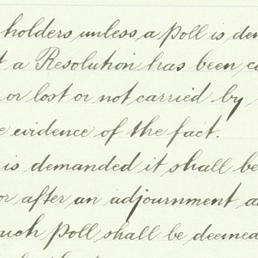 holders unless a poll is den
t a Resolution has been c
or lost or not carried by
e evidence of the fact.
is demanded it shall be
or after an adjournment a
such poll shall be deemed